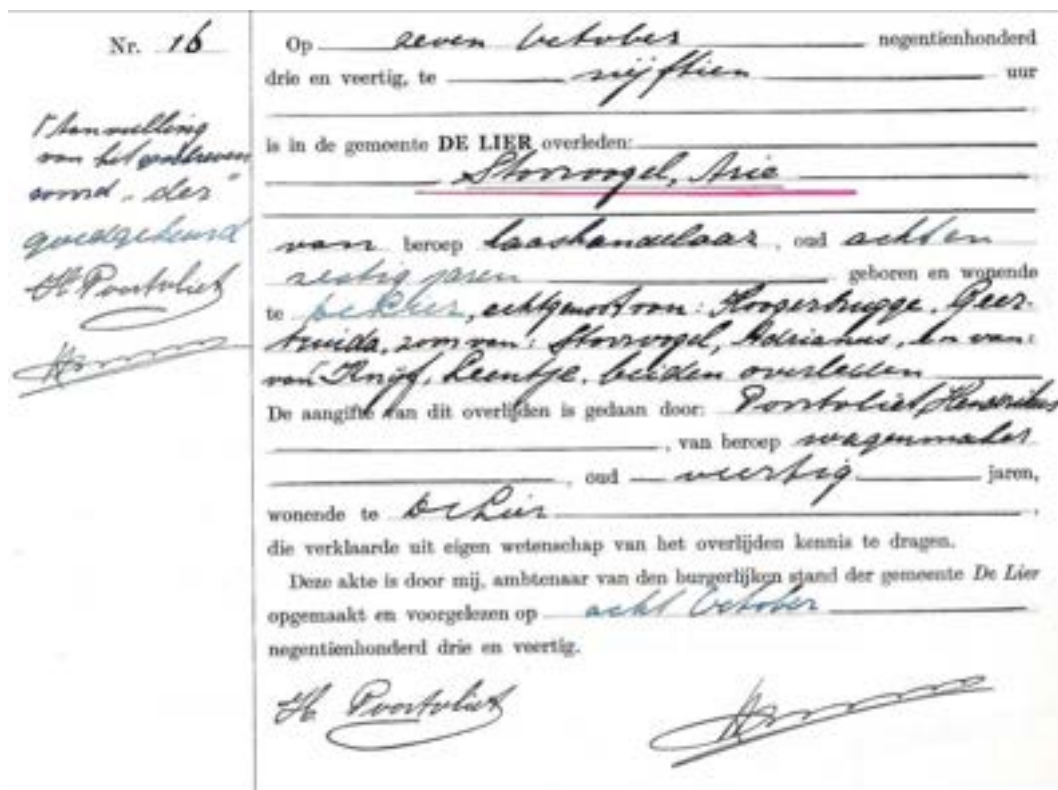 Nr. 16
Op zeven October negentienhonderd
drie en veertig, te vijftien uur
is in de gemeente DE LIER overleden:
Storrvogel, Arie
van beroep kaashandelaar, oud acht en
zestig jaren geboren en wonende
te De Lier, echtgenoot van: Hoogerbrugge, Geer-
truida, zoon van: Storrvogel, Adrianus, en van:
van Knijf, Leentje, beiden overleden
De aangifte van dit overlijden is gedaan door: Poortvliet, Hendrikus
, van beroep wagenmaker
, oud veertig jaren,
wonende te De Lier,
die verklaarde uit eigen wetenschap van het overlijden kennis te dragen.
Deze akte is door mij, ambtenaar van den burgerlijken stand der gemeente De Lier
opgemaakt en voorgelezen op acht October
negentienhonderd drie en veertig.
H. Poortvliet
Aanvulling
van het
woord "der"
goedgekeurd
H. Poortvliet